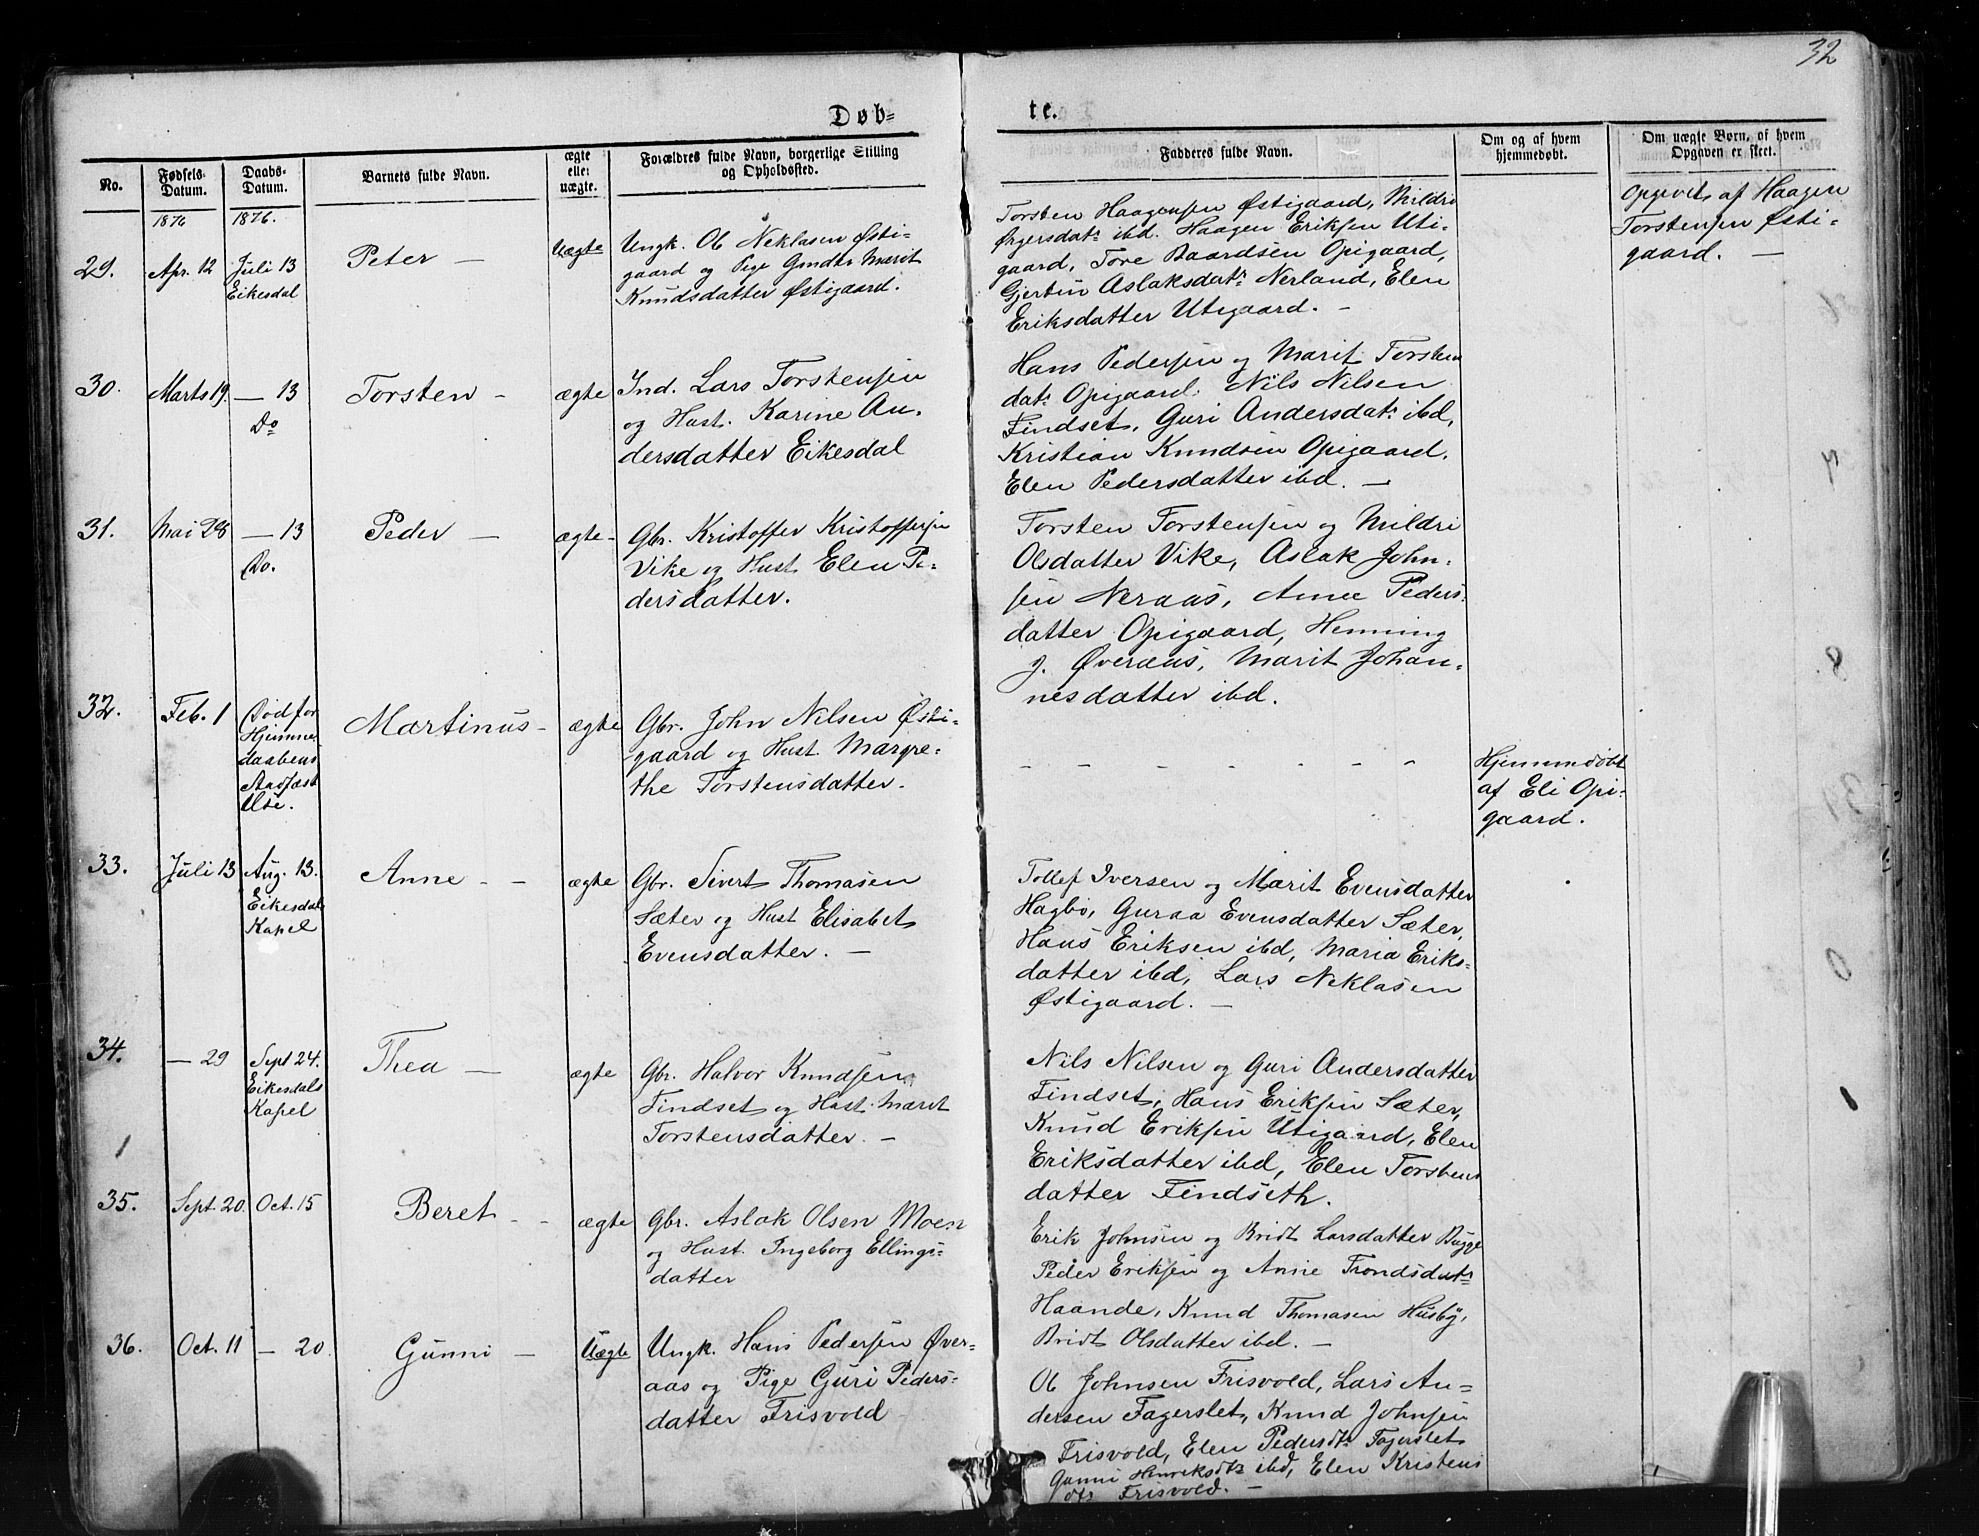 32
Døb-
te.
No.
Fødsels-
Datum.
Daabs-
Datum.
Barnets fulde Navn.
ægte
eller
uægte.
Forældres fulde Navn, borgerlige Stilling
og Opholdssted.
Fadderes fulde Navn.
Om og af hvem
hjemmedøbt.
Om uægte Børn, af hvem
Opgaven er skeet.
1876
1876.
29.
Apr. 12
Juli 13
Eikesdal
Peter –
Uægte
Ungk. Ob Neklasen Østi-
gaard og Pige Marit
Knudsdatter Østigaard.
Torsten Haagensen Østigaard, Mildri
ibd. Haagen Eriksen Uti-
gaard, Tore Baardsen Opigaard,
Gjertin Aslaksdatr Nerland, Elen
Eriksdatter Utigaard. –
Opgivet af Haagen
Torstensen Østi-
gaard. –
30.
Marts 19.
– 13
Do
Torsten –
ægte
Ind. Lars Torstensen
og Hust. Karine An-
dersdatter Eikesdal
Hans Pedersen og Marit Torsten
datr Opigaard. Nils Nilsen
Findset, Guri Andersdatr ibd,
Kristian Knudsen Opigaard.
Elen Pedersdatter ibd. –
31.
Mai 28
– 13
Do.
Peder –
ægte –
Gbr. Kristoffer Kristoffersen
Vike og Hust Elen Pe-
dersdatter.
Torsten Torstensen og Mildri
Olsdatter Vike, Aslak John-
sen Neraas, Anne Peders-
datter Opigaard, Henning
J. Øveraas, Marit Johan-
nesdatter ibd.
32.
Feb. 1
Død for
Hjemme-
daabens
Stadfæst
else.
Martinus –
ægte
Gbr. John Nilsen Østi-
gaard og Hust. Margre-
the Torstensdatter.
– – – – – – –
Hjemmedøbt
af Eli Opi-
gaard.
33.
Juli 13
Aug. 13.
Eikesdals
Kapel
Anne – –
ægte
Gbr. Sivert Thomasen
Sæter og Hust Elisabet
Evensdatter. –
Tollef Iversen og Marit Evensdatter
Hagbø, Guraa Evensdatter Sæter,
Hans Eriksen ibd, Maria Eriks-
datter ibd, Lars Neklasen
Østigaard. –
34.
– 29
Sept 24.
Eikesdals
Kapel
Thea –
ægte
Gbr. Halvor Knudsen
Findset og Hust. Marit
Torstensdatter. –
Nils Nilsen og Guri Andersdatter
Findset, Hans Eriksen Sæter,
Knud Eriksen Utigaard, Elen
Eriksdatter ibd, Elen Torstens
datter Findseth.
35.
Sept. 20.
Oct. 15
Beret – –
ægte
Gbr. Aslak Olsen Moen
og Hust. Ingeborg Ellings-
datter
Erik Johnsen og Bridt Larsdatter Bugge
Peder Eriksen og Anne Trondsdatr
Haande, Knud Thomasen Husby,
Bridt Olsdatter ibd. –
36.
Oct. 11
– 20.
Gunni –
Uægte
Ungk. Hans Pedersen Øver-
aas og Pige Guri Peders-
datter Frisvold
Ol Johnsen Frisvold, Lars An-
dersen Fagerslet, Knud Johnsen
Frisvold, Elen Pedersdtr Fagerslet
Gunni Henriksdtr ibd, Elen Kristens
dtr Frisvold. –